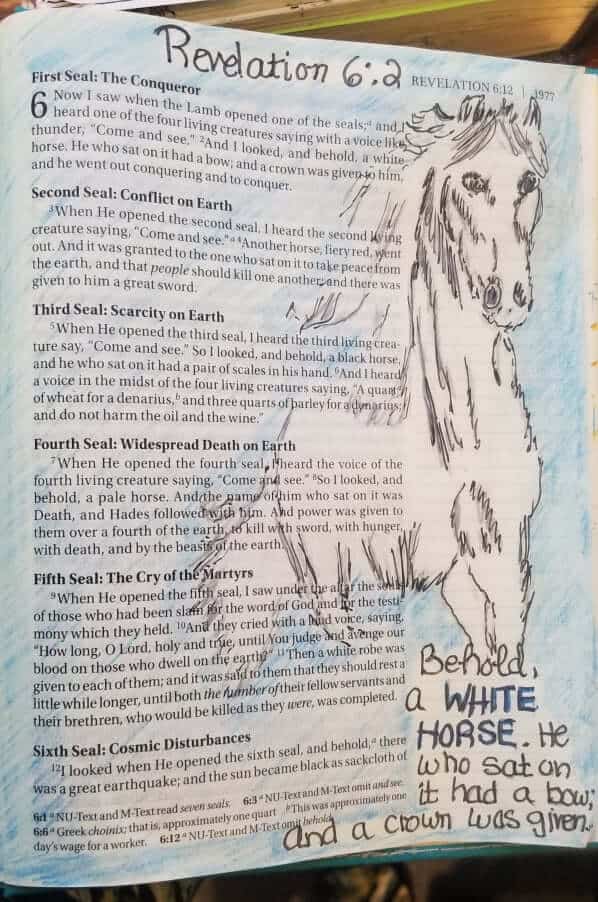 Revelation 6:2
REVELATION 6:12 | 1977
First Seal: The Conqueror
6 Now I saw when the Lamb opened one of the seals;a and I
heard one of the four living creatures saying with a voice like
thunder, “Come and see.” 2And I looked, and behold, a white
horse. He who sat on it had a bow; and a crown was given to him,
and he went out conquering and to conquer.
Second Seal: Conflict on Earth
3When He opened the second seal, I heard the second living
creature saying, “Come and see.”a 4Another horse, fiery red, went
out. And it was granted to the one who sat on it to take peace from
the earth, and that people should kill one another; and there was
given to him a great sword.
Third Seal: Scarcity on Earth
5When He opened the third seal, I heard the third living crea-
ture say, “Come and see.” So I looked, and behold, a black horse,
and he who sat on it had a pair of scales in his hand. 6And I heard
a voice in the midst of the four living creatures saying, “A quarta
of wheat for a denarius,b and three quarts of barley for a denarius;
and do not harm the oil and the wine.”
Fourth Seal: Widespread Death on Earth
7When He opened the fourth seal, I heard the voice of the
fourth living creature saying, “Come and see.” 8So I looked, and
behold, a pale horse. And the name of him who sat on it was
Death, and Hades followed with him. And power was given to
them over a fourth of the earth, to kill with sword, with hunger,
with death, and by the beasts of the earth.
Fifth Seal: The Cry of the Martyrs
9When He opened the fifth seal, I saw under the altar the souls
of those who had been slain for the word of God and for the testi-
mony which they held. 10And they cried with a loud voice, saying,
“How long, O Lord, holy and true, until You judge and avenge our
blood on those who dwell on the earth?” 11Then a white robe was
given to each of them; and it was said to them that they should rest a
little while longer, until both the number of their fellow servants and
their brethren, who would be killed as they were, was completed.
Sixth Seal: Cosmic Disturbances
12I looked when He opened the sixth seal, and behold,a there
was a great earthquake; and the sun became black as sackcloth of
6:1 a NU-Text and M-Text read seven seals. 6:3 a NU-Text and M-Text omit and see.
6:6 a Greek choinix; that is, approximately one quart b This was approximately one
day's wage for a worker. 6:12 a NU-Text and M-Text omit behold.
Behold,
a WHITE
HORSE. He
who sat on
it had a bow;
and a crown was given..